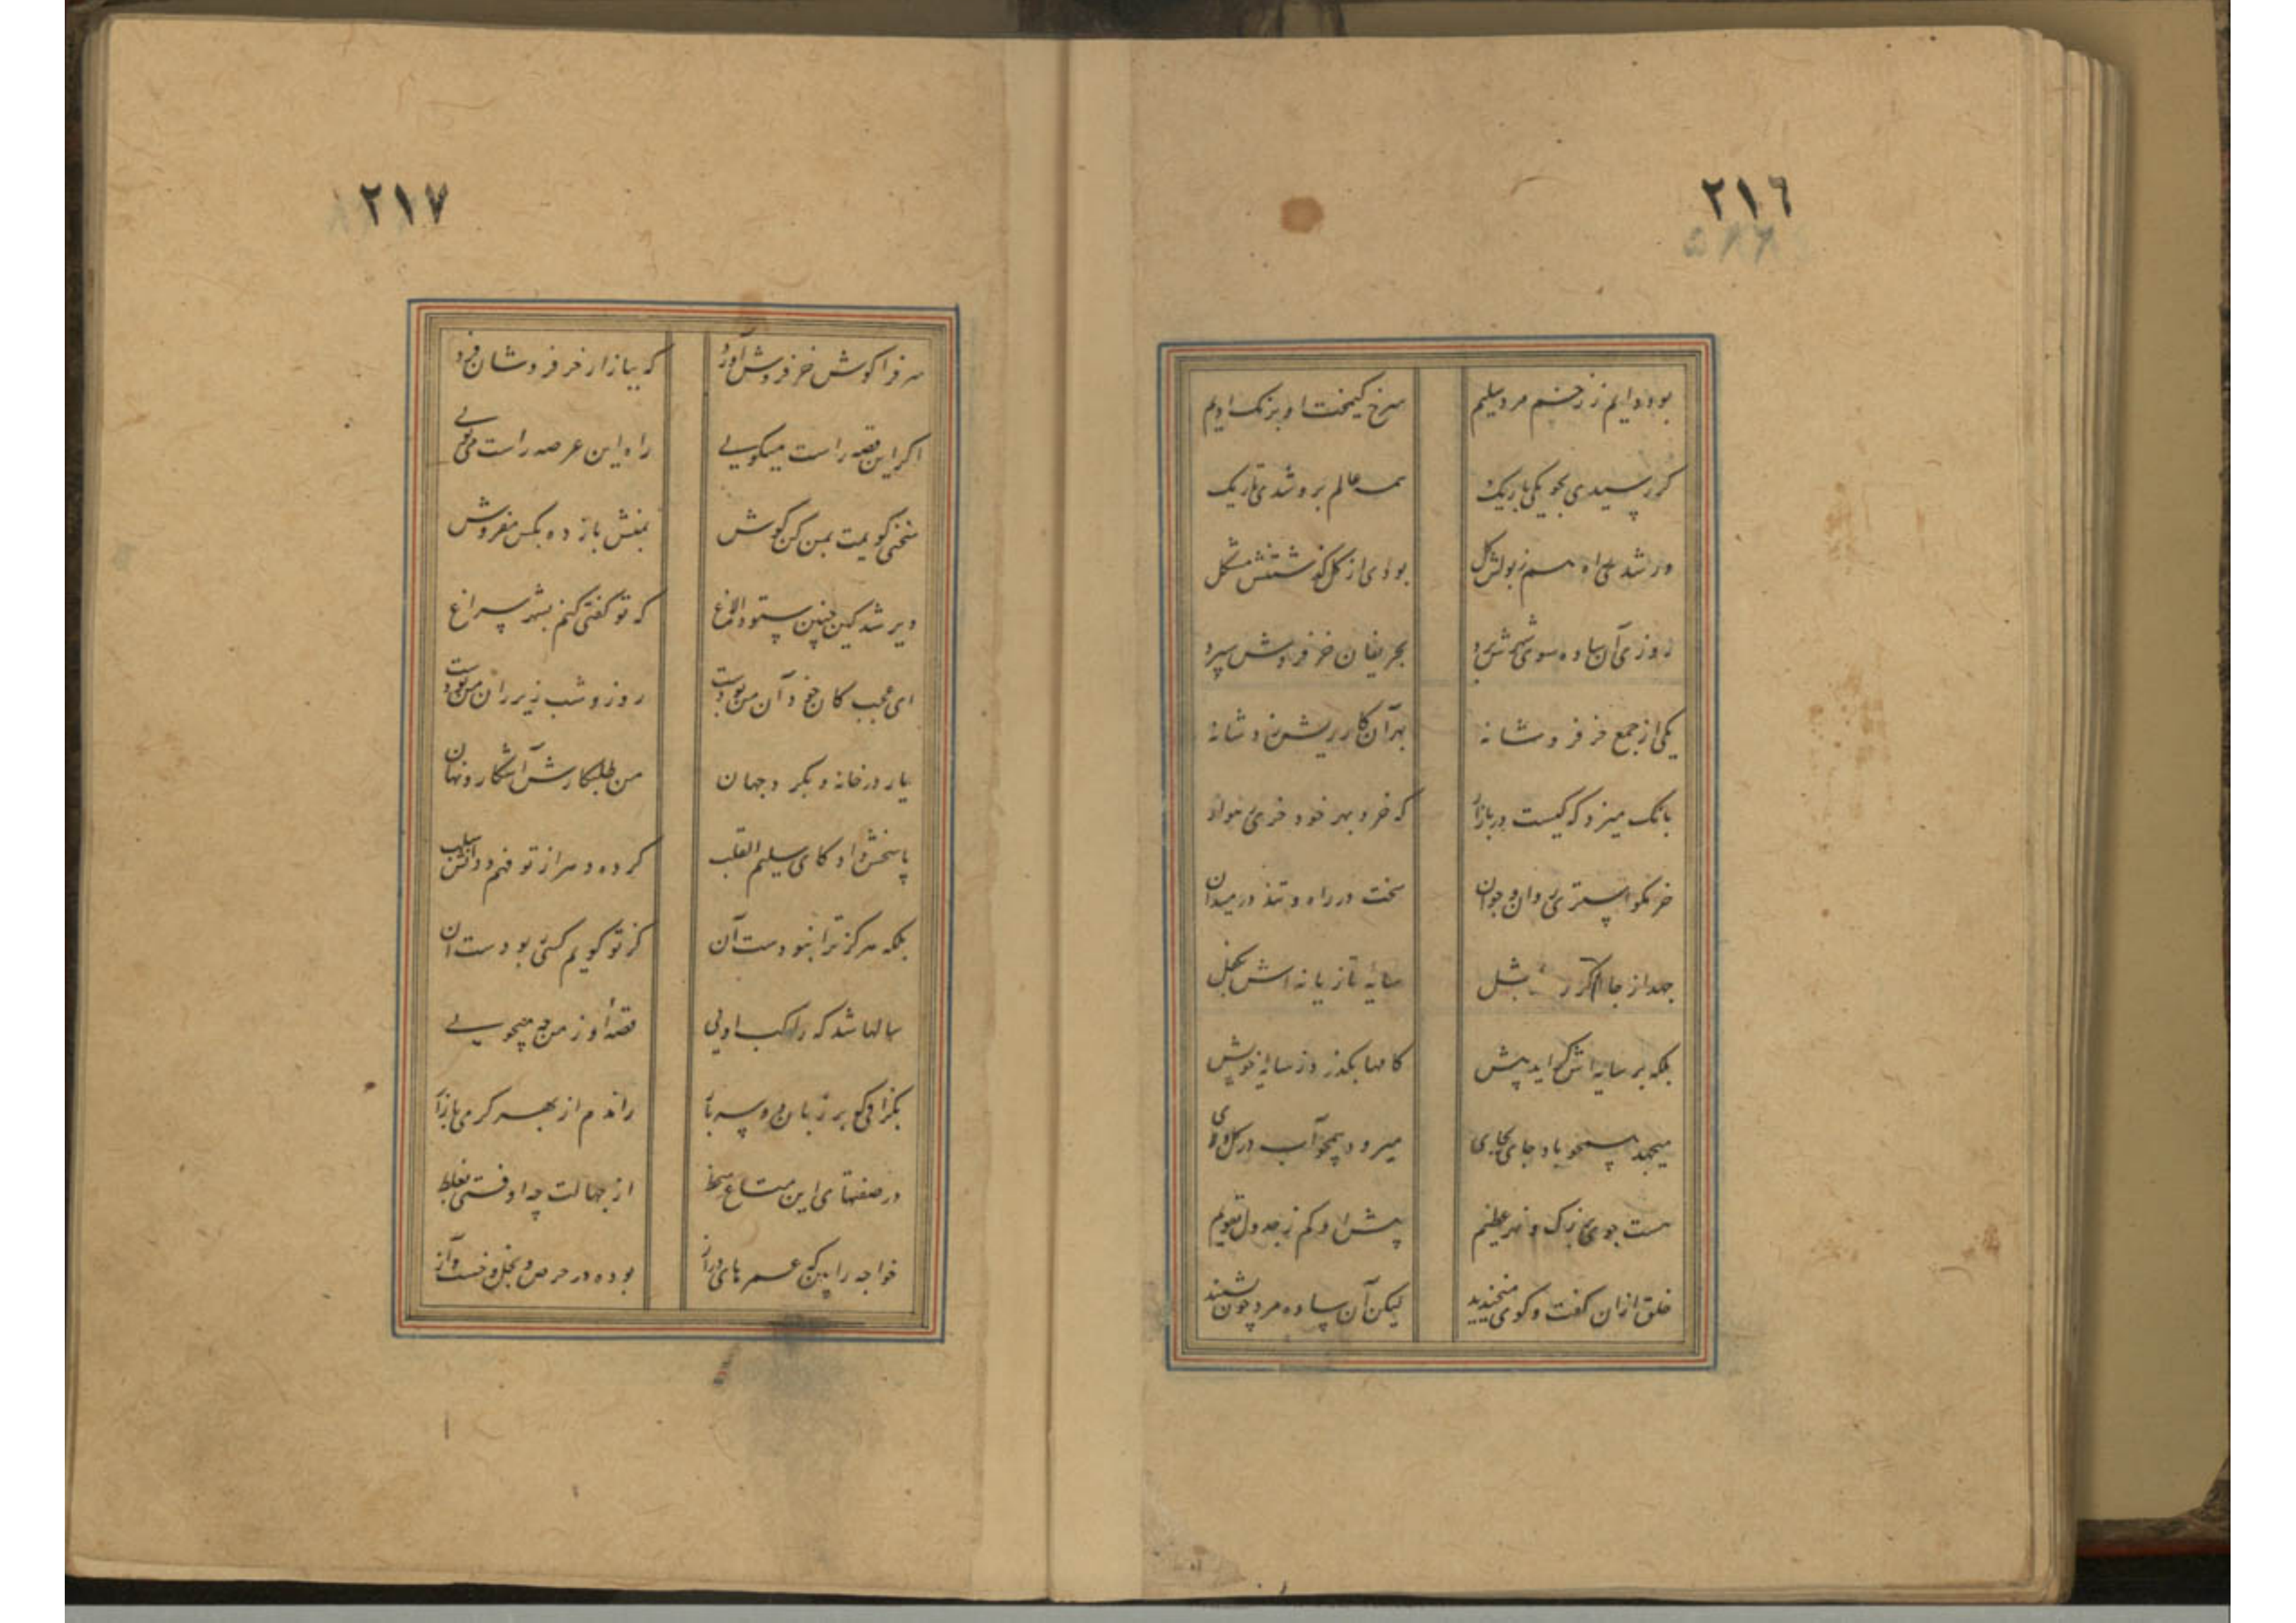 ٢١٦
بودد ایم ز زخم مرد سلیم
سرخ کیمخت او برنک ادیم
کر رسیدی بجویکی باریک
همه عالم برو شدی تاریک
ور شدی راه هم ز بولش کل
بودی از کل کذشتنش مشکل
روزی آن ساده سوی شهرش برد
بحریفان خر فروش سپرد
یکی از جمع خر فروشانه
بهر آن کار ریش زد شانه
بانک میزد که کیست در بازار
که خرد بهر خود خری هموار
خر نکو استری روان و جوان
سخت در راه و تند در میدان
جهد از جا اکر رسد بمثل
سایه تازیانه اش بکفل
بلکه بر سایه اش کر اید پیش
کامها بکذرد ز سایه خویش
میجهد همچو باد جای بجای
میرود همچو آب در کل و لای
هست جوی بزرک و نهر عظیم
پیش او کم ز جدول تقویم
خلق ازان کفت و کوی میخندید
لیکن آن ساده مرد چون شنید
٢١٧
سر فرا کوش خر فروش آورد
که ببازار خر فروشان فرد
اکر این قصه راست میکویی
راه این عرصه راست می پویی
سخنی کویمت بمن کن کوش
بمنش باز ده بکس مفروش
دیر شد کین چنین ستوده الاغ
که تو کفتی کنم بشهر سراغ
ای عجب کان خود آن من بودست
روز و شب زیر ران من بودست
یار در خانه و بکرد جهان
من طلبکارش آشکار و نهان
پاسخش داد کای سلیم القلب
کرده دهر از تو فهم و دانش سلب
بلکه هرکز ترا نبودست آن
کز تو کویم کسی بودست آن
سالها شد که راکب اویی
قصه او ز من چه میجویی
بکزافی که بر زبان دو سه بار
راندم از بهر کرمی بازار
در صفتهای این متاع سقط
از جهالت چه اوفتی بغلط
خواجه را بین که عمرهای دراز
بوده در حرص و بخل و خست و آز